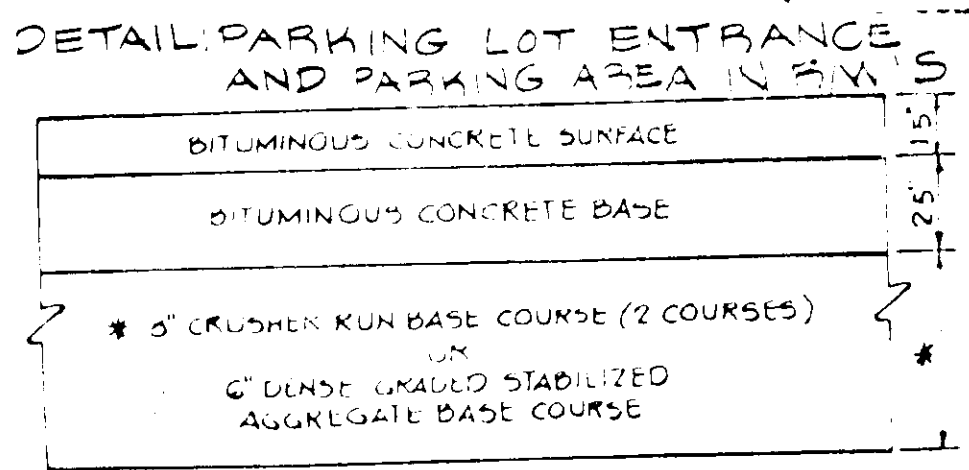 DETAIL: PARKING LOT ENTRANCE
AND PARKING AREA IN R/W'S
BITUMINOUS CONCRETE SURFACE
1.5"
BITUMINOUS CONCRETE BASE
2.5"
* " CRUSHER RUN BASE COURSE (2 COURSES)
OR
6" DENSE GRADED STABILIZED
AGGREGATE BASE COURSE
*